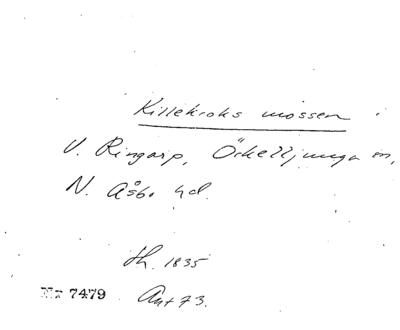 Killekroks mossen
V. Ringarp, Örkelljunga sn,
N. Åsbo hd.
th. 1835
Nr 7479 Ant 73.